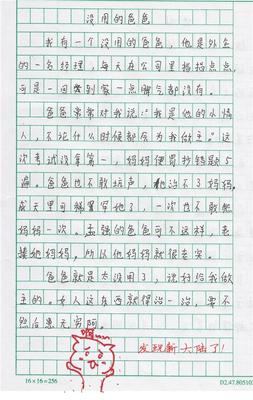 没用的爸爸
我有一个没用的爸爸，他是外企
的一名经理，每天在公司里指指点点，
可是一回到家一点脾气都没有。
爸爸常常对我说："我是他的小情
人，不论什么时候都会为我做主。"这
次考试没拿第一，妈妈便罚抄错题5
遍。爸爸也不敢坑声，他治不了妈妈。
成天里可糊置写他了，一次也不敢
妈妈一次。孟强的爸爸可不这样，表
揍她妈妈，所以他妈妈就很老实。
爸爸就是太没用了，说好给我做
主的。女人这东西就得治一治，要不
然后患无穷阿。
发现新大陆了！
16×16=256
D2.47.80510